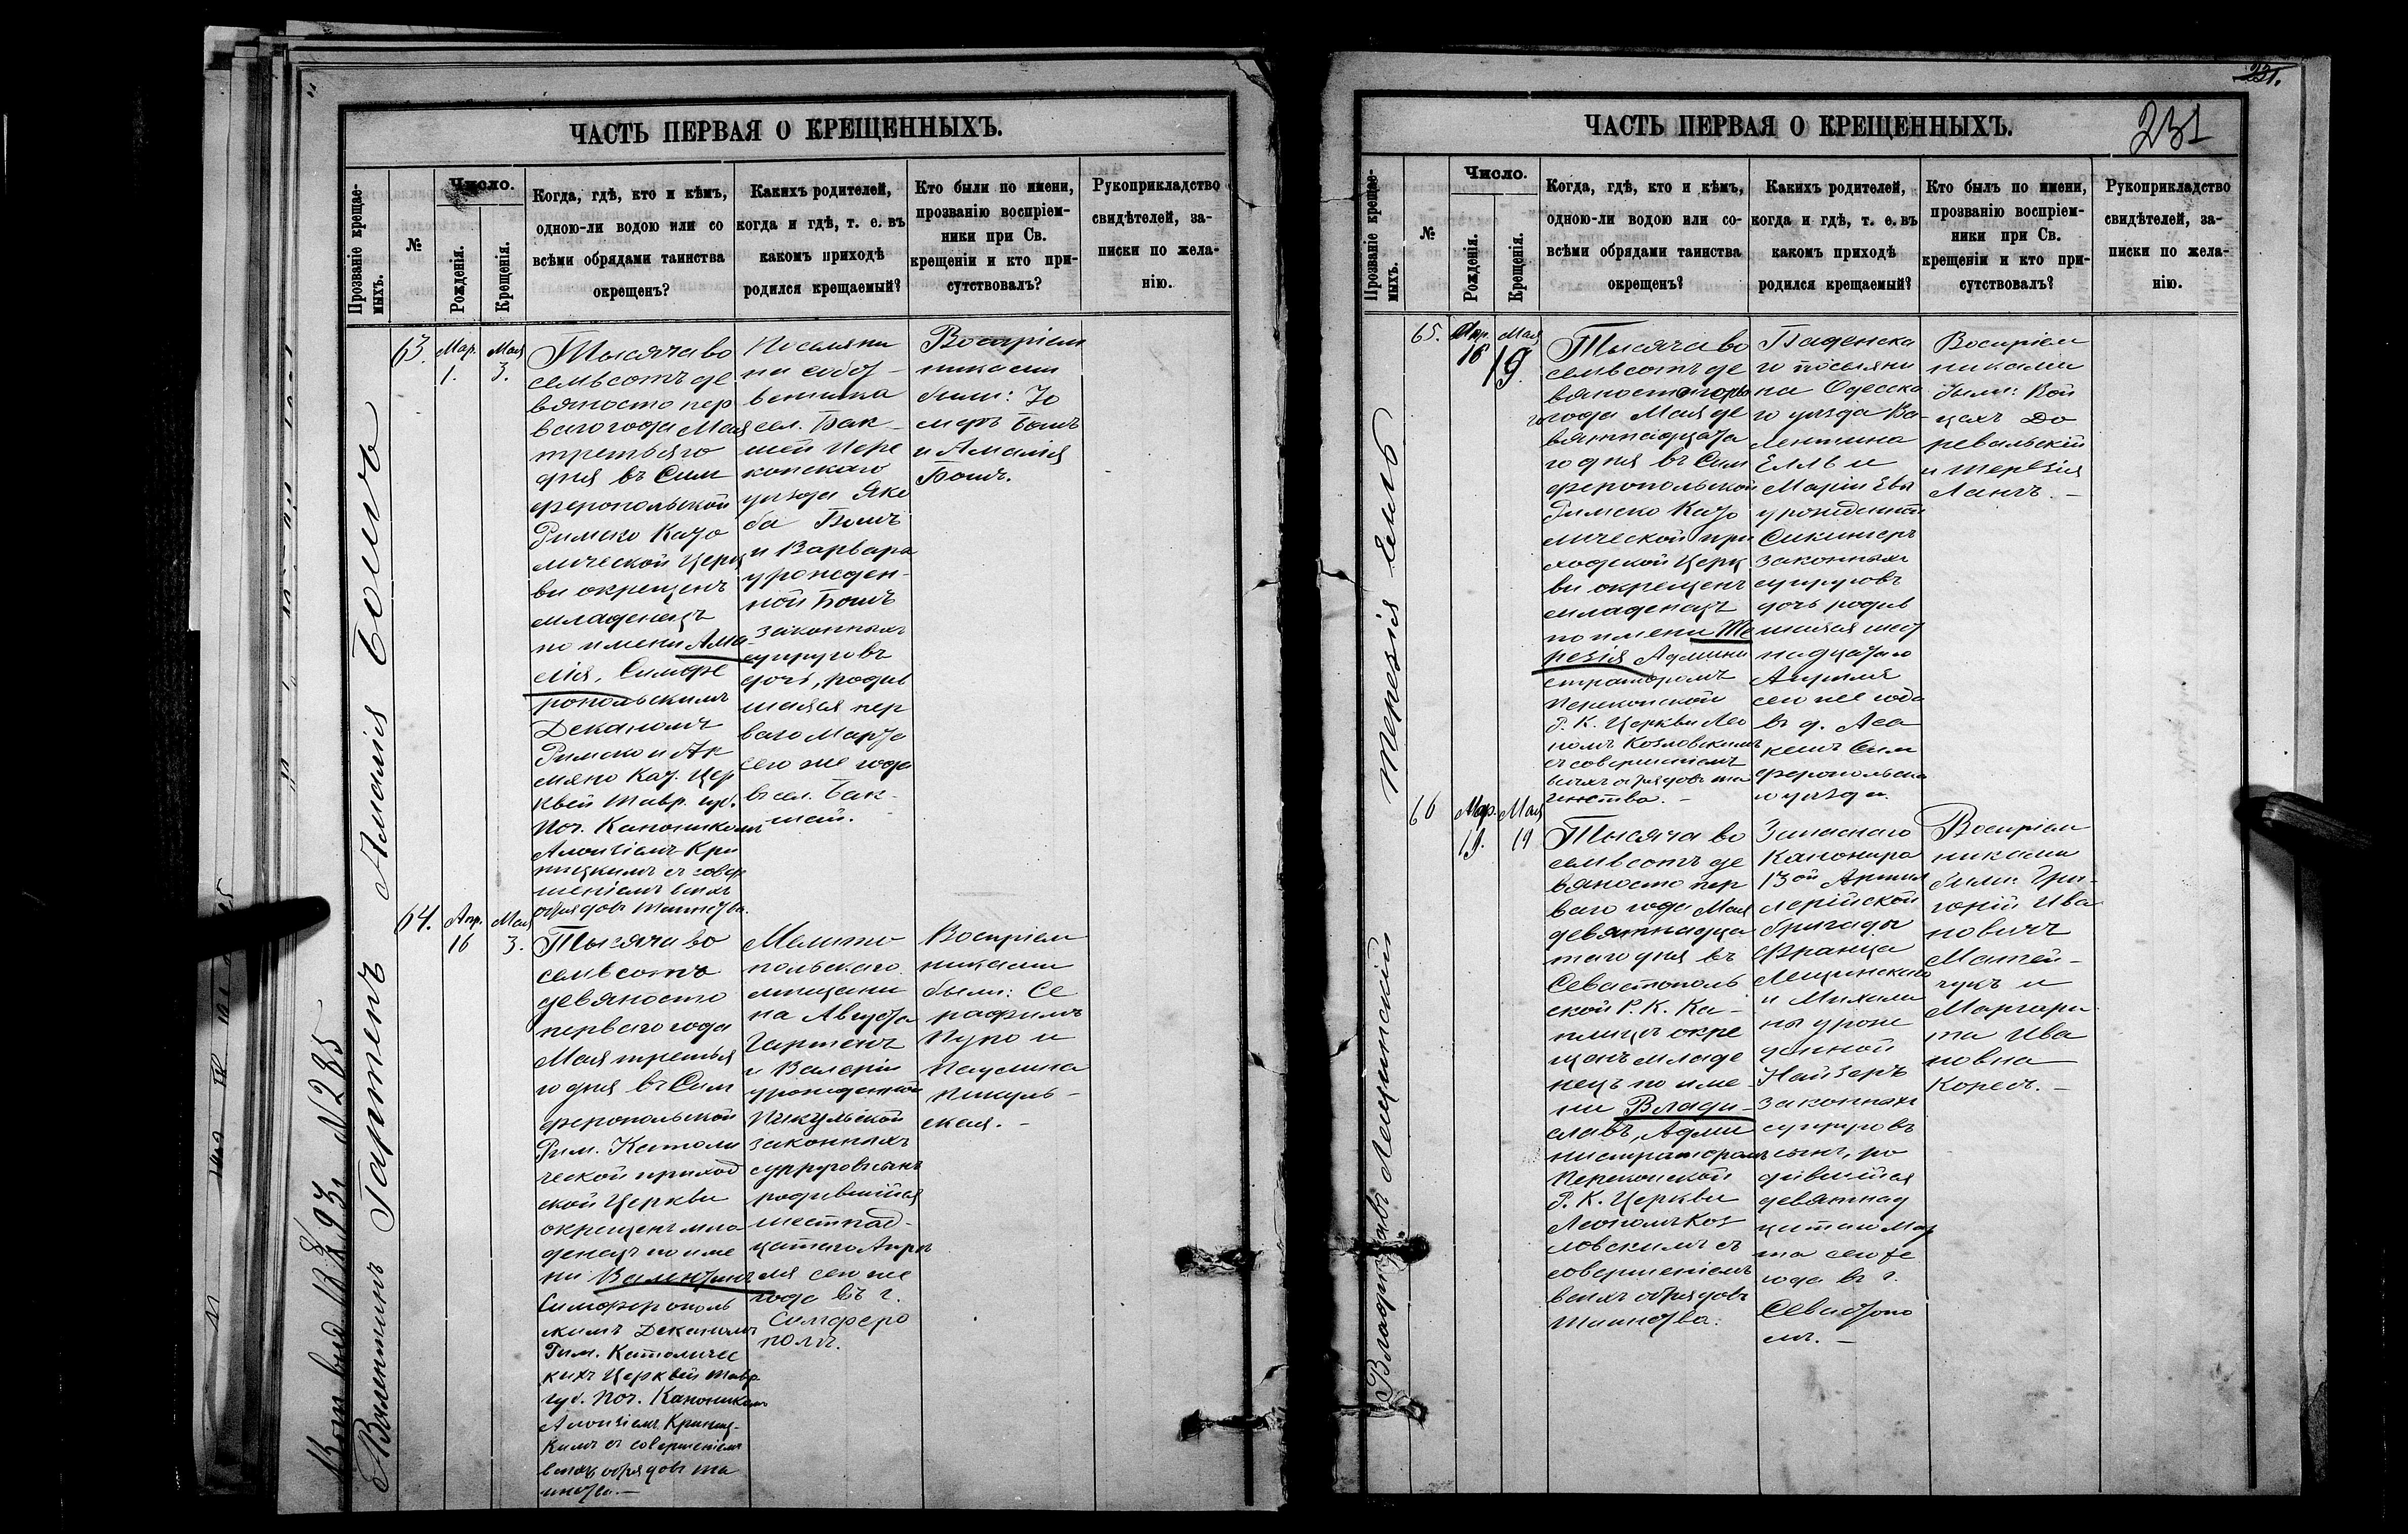 ЧАСТЬ ПЕРВАЯ О КРЕЩЕННЫХЪ.
Прозваніе крещаемыхъ.
№
Число.
Рожденія.
Крещенія.
Когда, гдѣ, кто и кѣмъ,
одною-ли водою или со
всѣми обрядами таинства
окрещенъ?
Какихъ родителей,
когда и гдѣ, т. е. въ
какомъ приходѣ
родился крещаемый?
Кто были по имени,
прозванію воспріем-
ники при Св.
крещеніи и кто при-
сутствовалъ?
Рукоприкладство
свидѣтелей, за-
писки по жела-
нію.
Амалія Бошъ
63.
Мар.
1.
Мая
3.
Тысяча во
семьсотъ де
вяносто пер
ваго года Мая
третьяго
дня въ Сим
феропольской
Римско Като
лической Церк
ви окрещенъ
младенецъ
по имени Ама
лія, Симфе
ропольскимъ
Деканомъ
Римско и Ар
мяно Кат. Цер
квей Тавр. губ.
Поч. Каноникомъ
Алоизіемъ Кри
ницкимъ съ совер
шеніемъ всѣхъ
обрядовъ таинства.
Поселяни
на собст
венника
сел. Бак
шей Пере
копскаго
уѣзда Яко
ба Бошъ
и Варвары
урожден-
ной Бошъ
законныхъ
супруговъ
дочь, родив
шаяся пер
ваго Марта
сего же года
въ сел. Бак-
шай.
Воспріем
никами
были: Іо
сифъ Бошъ
и Амалія
Бошъ.
Валентинъ Гартенъ
64.
Апр.
16
Мая
3.
Тысяча во
семьсотъ
девяносто
перваго года
Мая третья
го дня въ Сим
феропольской
Рим. Католи
ческой приход
ской Церкви
окрещенъ мла
денецъ по име
ни Валентинъ
Симферополь
скимъ Деканомъ
Рим. Католичес
кихъ Церквей Тавр.
губ. Поч. Каноникомъ
Алоизіемъ Криниц-
кимъ съ совершеніемъ
всѣхъ обрядовъ та
инства.—
Мелито
польскаго
мѣщани
на Августа
Гартенъ
и Валеріи
урожденной
Пикульской
законныхъ
супруговъ сынъ
родившійся
шестнад-
цатаго Апрѣ
ля сего же
года въ г.
Симферо
полѣ.
Воспріем
никами
были: Се
рафимъ
Пуго и
Паулина
Пикуль-
ская.—
231.
231
ЧАСТЬ ПЕРВАЯ О КРЕЩЕННЫХЪ.
Прозваніе крещаемыхъ.
№
Число.
Рожденія.
Крещенія.
Когда, гдѣ, кто и кѣмъ,
одною-ли водою или со-
всѣми обрядами таинства
окрещенъ?
Какихъ родителей,
когда и гдѣ, т. е. въ
какомъ приходѣ
родился крещаемый?
Кто былъ по имени,
прозванію воспріем-
ники при Св.
крещеніи и кто при-
сутствовалъ?
Рукоприкладство
свидѣтелей, за-
писки по жела-
нію.
Терезія Елль
65.
Апр.
16
Мая
19.
Тысяча во
семьсотъ де
вяносто перва
го года Мая де
вятнадцата
го дня въ Сим
феропольской
Римско Като
лической при
ходской Церк
ви окрещенъ
младенецъ
по имени Те
резія Админи
страторомъ
Перекопской
Р. К. Церкви Лео
помъ Козловскимъ
съ совершеніемъ
всѣхъ обрядовъ та
инства.—
Баденска
го поселяни
на Одесска
го уѣзда Ва
лентина
Елль и
Маріи Евы
урожденной
законныхъ
супруговъ
дочь родив
шаяся шест
надцатаго
Апрѣля
сего же года
въ д. Аса
кешъ Сим
феропольска
го уѣзда.
Воспріем
никами
были: Вой
цехъ До
ревальскій
и Терезія
Лангъ.—
Владиславъ Лещинскій
66
Мар.
19.
Мая
19
Тысяча во
семьсотъ де
вяносто пер
ваго года Мая
девятнадца
таго дня въ
Севастополь
ской Р. К. Ка-
плицѣ окре
щенъ младе
нецъ по име-
ни Влади-
славъ, Адми
нистраторомъ
Перекопской
Р. К. Церкви
Леопомъ Коз
ловскимъ съ
совершеніемъ
всѣхъ обрядовъ
таинства.
Запаснаго
Канонира
13ой Артил
лерійской
бригады
Франца
Лещинскаго
и Михали
ны урож
денной
Найзеръ
законныхъ
супруговъ
сынъ, ро
дившійся
девятнад
цатаго Мар
та сего же
года въ г.
Севастопо
лѣ.—
Воспріем
никами
были: Гри-
горій Ива
новичъ
Матей-
чукъ и
Маргари
та Ива
новна
Коресъ.—